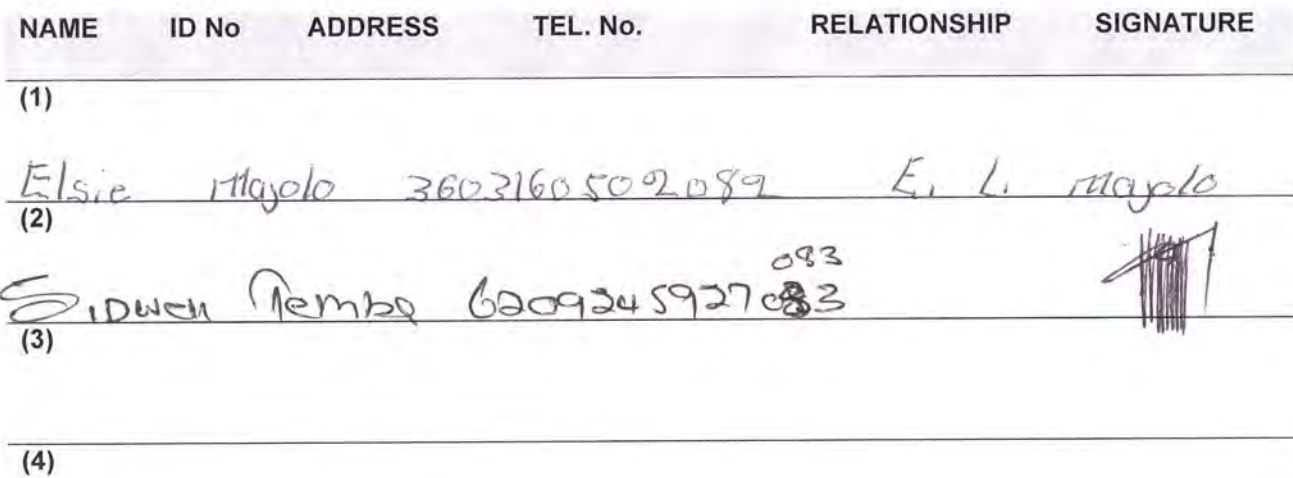 NAME ID No ADDRESS TEL. No. RELATIONSHIP SIGNATURE
(1)
Elsie Majolo 3603160502089 E. L. Majolo
(2)
083
Sidwell Tembe 6209245927083
(3)
(4)